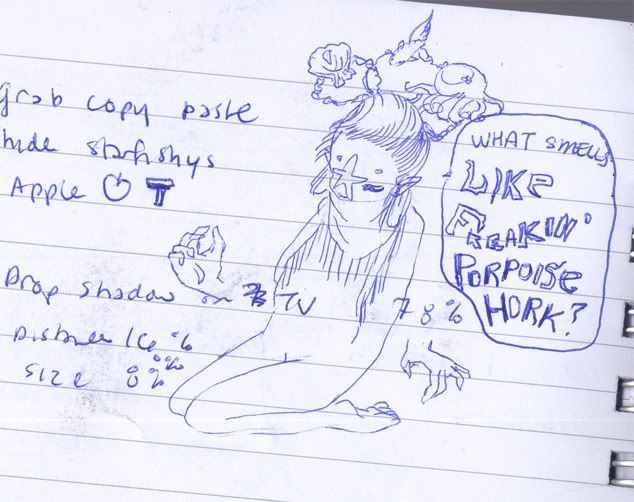 grab copy paste
hide starfishys
Apple T
Drop shadow
TV
78%
Distance 16%
Size 8%
WHAT SMELLS
LIKE
FREAKIN'
PORPOISE
HORK?